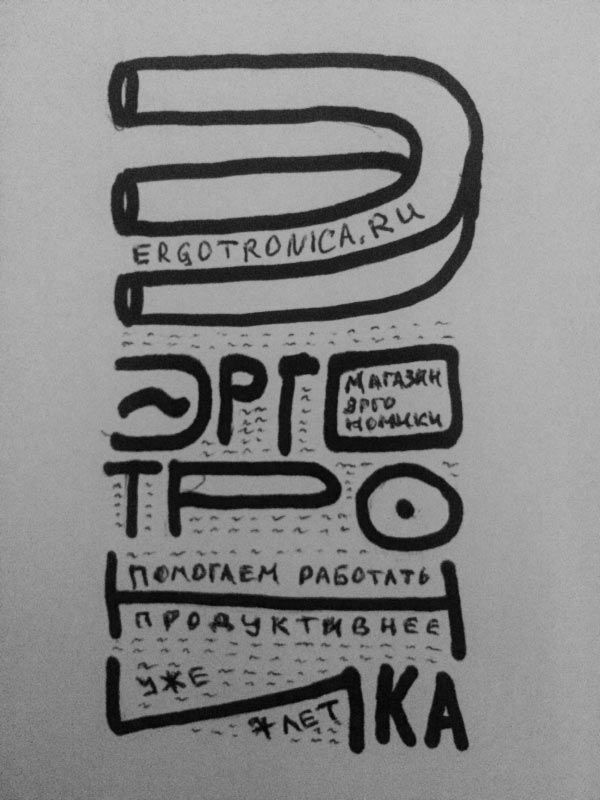 Э
ERGOTRONICA.RU
ЭРГО
МАГАЗИН
ЭРГО
НОМИКИ
ТРО
Н
ПОМОГАЕМ РАБОТАТЬ
ПРОДУКТИВНЕЕ
ИКА
УЖЕ
7 ЛЕТ